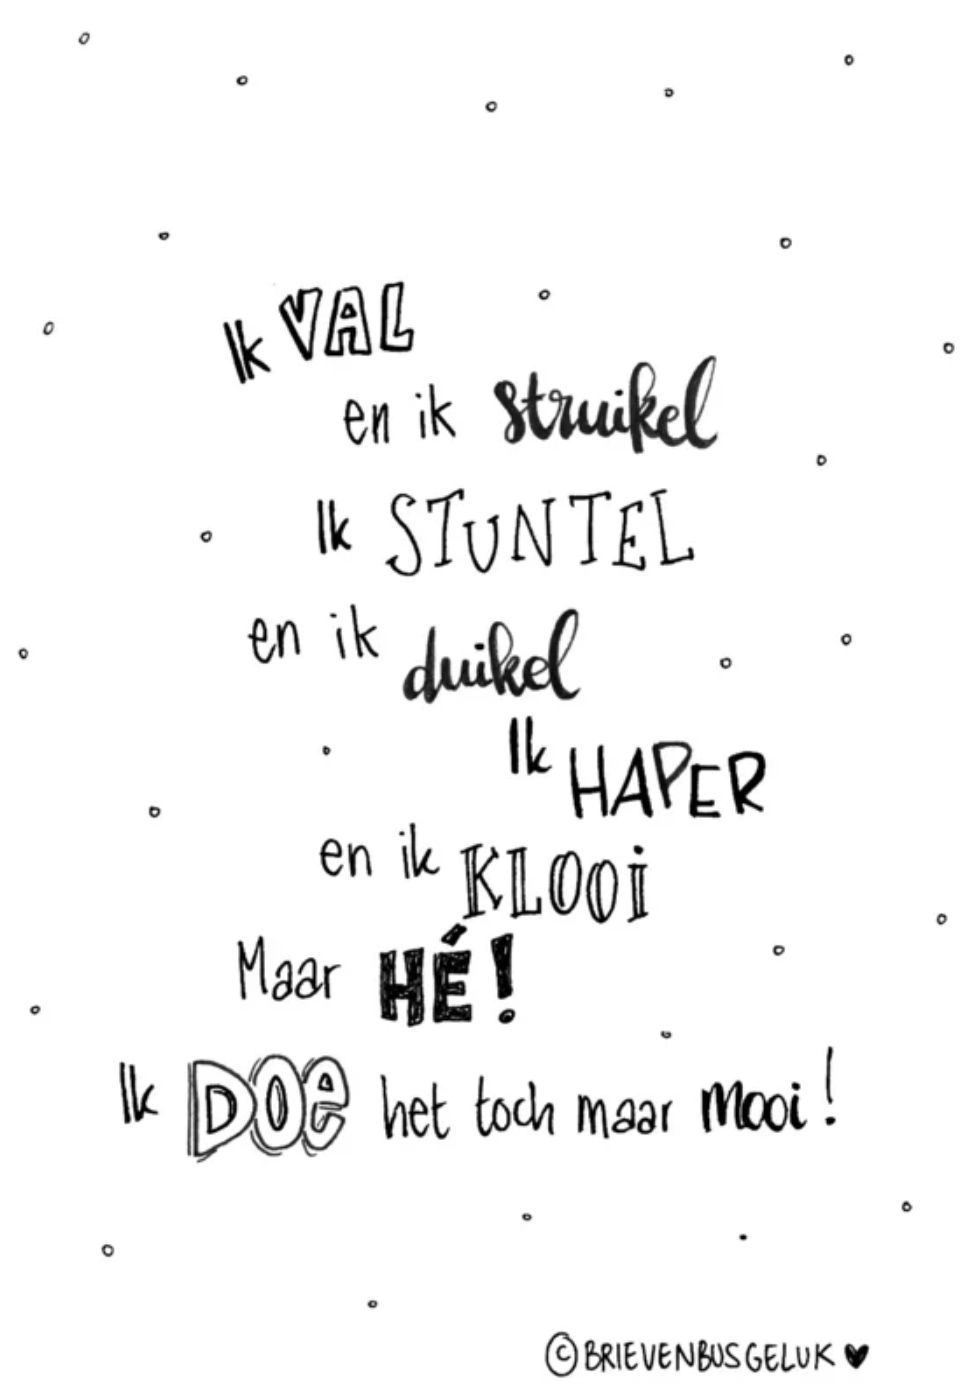 Ik VAL
en ik struikel
Ik STUNTEL
en ik duikel
Ik HAPER
en ik KLOOi
Maar HÉ!
Ik DOe het toch maar mooi!
©BRIEVENBUSGELUK ♥